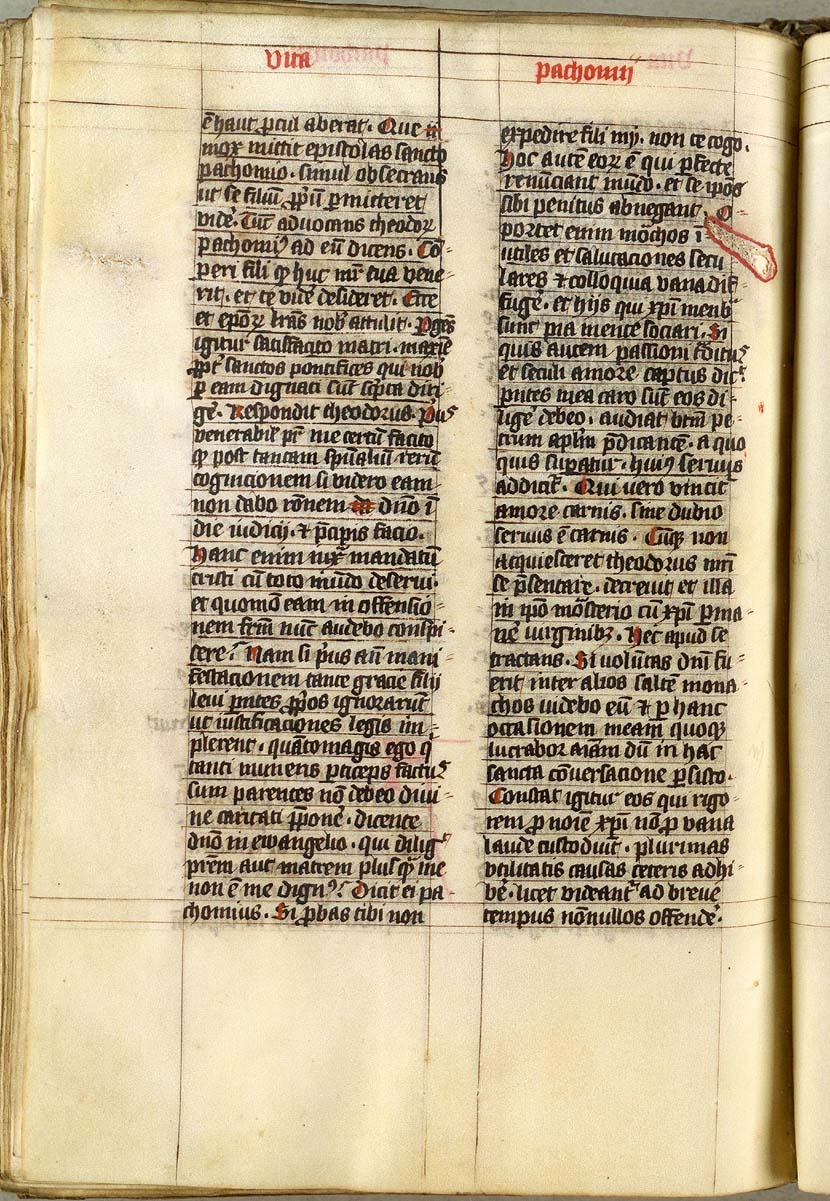 Vita
pachomij
ē haut ꝓcul aberat. Que
mox mittit epistolas sancto
pachomio. simul obsecrans
ut se filiū ꝓpiū ꝑmitteret
vidē. Tūc advocans theodorꝫ
pachomiꝰ ad eū dicens. Cō-
peri fili ꝙ huc mr̄ tua vene-
rit. et te vidē desideret. Ecce
et epōꝝ lr̄as nob̄ attulit.
igitur satisfacito matri. maxīe
ꝓpt̄ sanctos pontifices qui nob̄
ꝑ eam dignati sūt sc̄pta diri-
gē. Respondit theodorus. pͥusˢ
venerabil̄ pr̄ me certū facito
ꝙ post tantam sp̄ualiū rerū
cognicionem si videro eam
non dabo rōnem dn̄o ī
die iudicij. ⁊ p̄cipis facio.
Hanc enim iuxͣ mandatū
cristi cū toto mūdo deserui.
et quomō eam in offensio-
nem fr̄m nūc audebo conspi-
cere? Nam si pͥus an̄ mani-
festacionem tante gracie filij
levi pn̄tes ꝓpͥos ignorarūt
ut iustificaciones legis im-
plerent. quātomagis ego qͥ
tanti muneris pͣticeps factuˢ
sum parentes nō debeo divi-
ne caritati p̄ponē. dicente
dn̄o in ewangelio. qui diligᵗ
pr̄em aut matrem plusqͣ̄ me
non ē me dignꝰ? Dicit ei pa
chomius. Si ꝓbas tibi non
expedire fili mi. non te cogo.
Hoc autē eoꝝ ē qui ꝑfecte
renūciant mūdo. et se ip̄os
sibi penitus abnegant. O-
portet enim mōchos ī-
utiles et salutaciones secu
lares ⁊ colloquia vana dif-
fugē. et hijs qui xp̄i menbͣ
sunt pia mente sociari. Si
quis autem passioni
et seculi amore captus dicᵗ.
pn̄tes mea caro sūt eos di-
ligē debeo. audiat btm̄ pe-
trum apl̄m p̄dicantē. a quo
quis suꝑatur. huiꝰ servus
addicitᷣ. Qui vero vincit̄
amore carnis. sine dubio
servus ē carnis. Cūqꝫ non
acquiesceret theodorus mr̄i
se pͥsentare. decrevit et illa
in ip̄o mōsterio cū xp̄i ꝑma-
nē virginibꝫ. Hec apud se
tractans. Si volūtas dn̄i fu-
erit inter alios saltē mona-
chos videbo eū ⁊ ꝑ hanc
occasionem meam quoqꝫ
lucrabor aīam dū in hac
sancta cōversacione ꝑsisto.
Constat igitur eos qui rigo-
rem ꝓ noīe xp̄i nō ꝓ vana
laude custodiūt. plurimas
utilitatis causas ceteris adhi-
bē. licet videantᷣ ad breve
tempus nōnullos offendē.